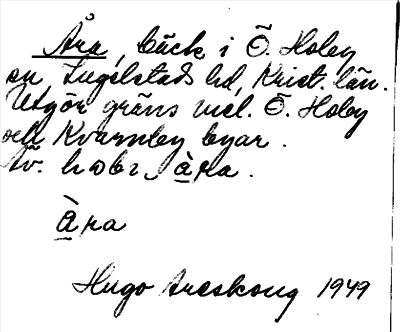 Åra, bäck i Ö. Hoby
sn, Ingelstads hd, Krist. län.
Utgör gräns mel. Ö. Hoby
och Kvarnby byar.
àra.
àra
Hugo Areskoug 1949